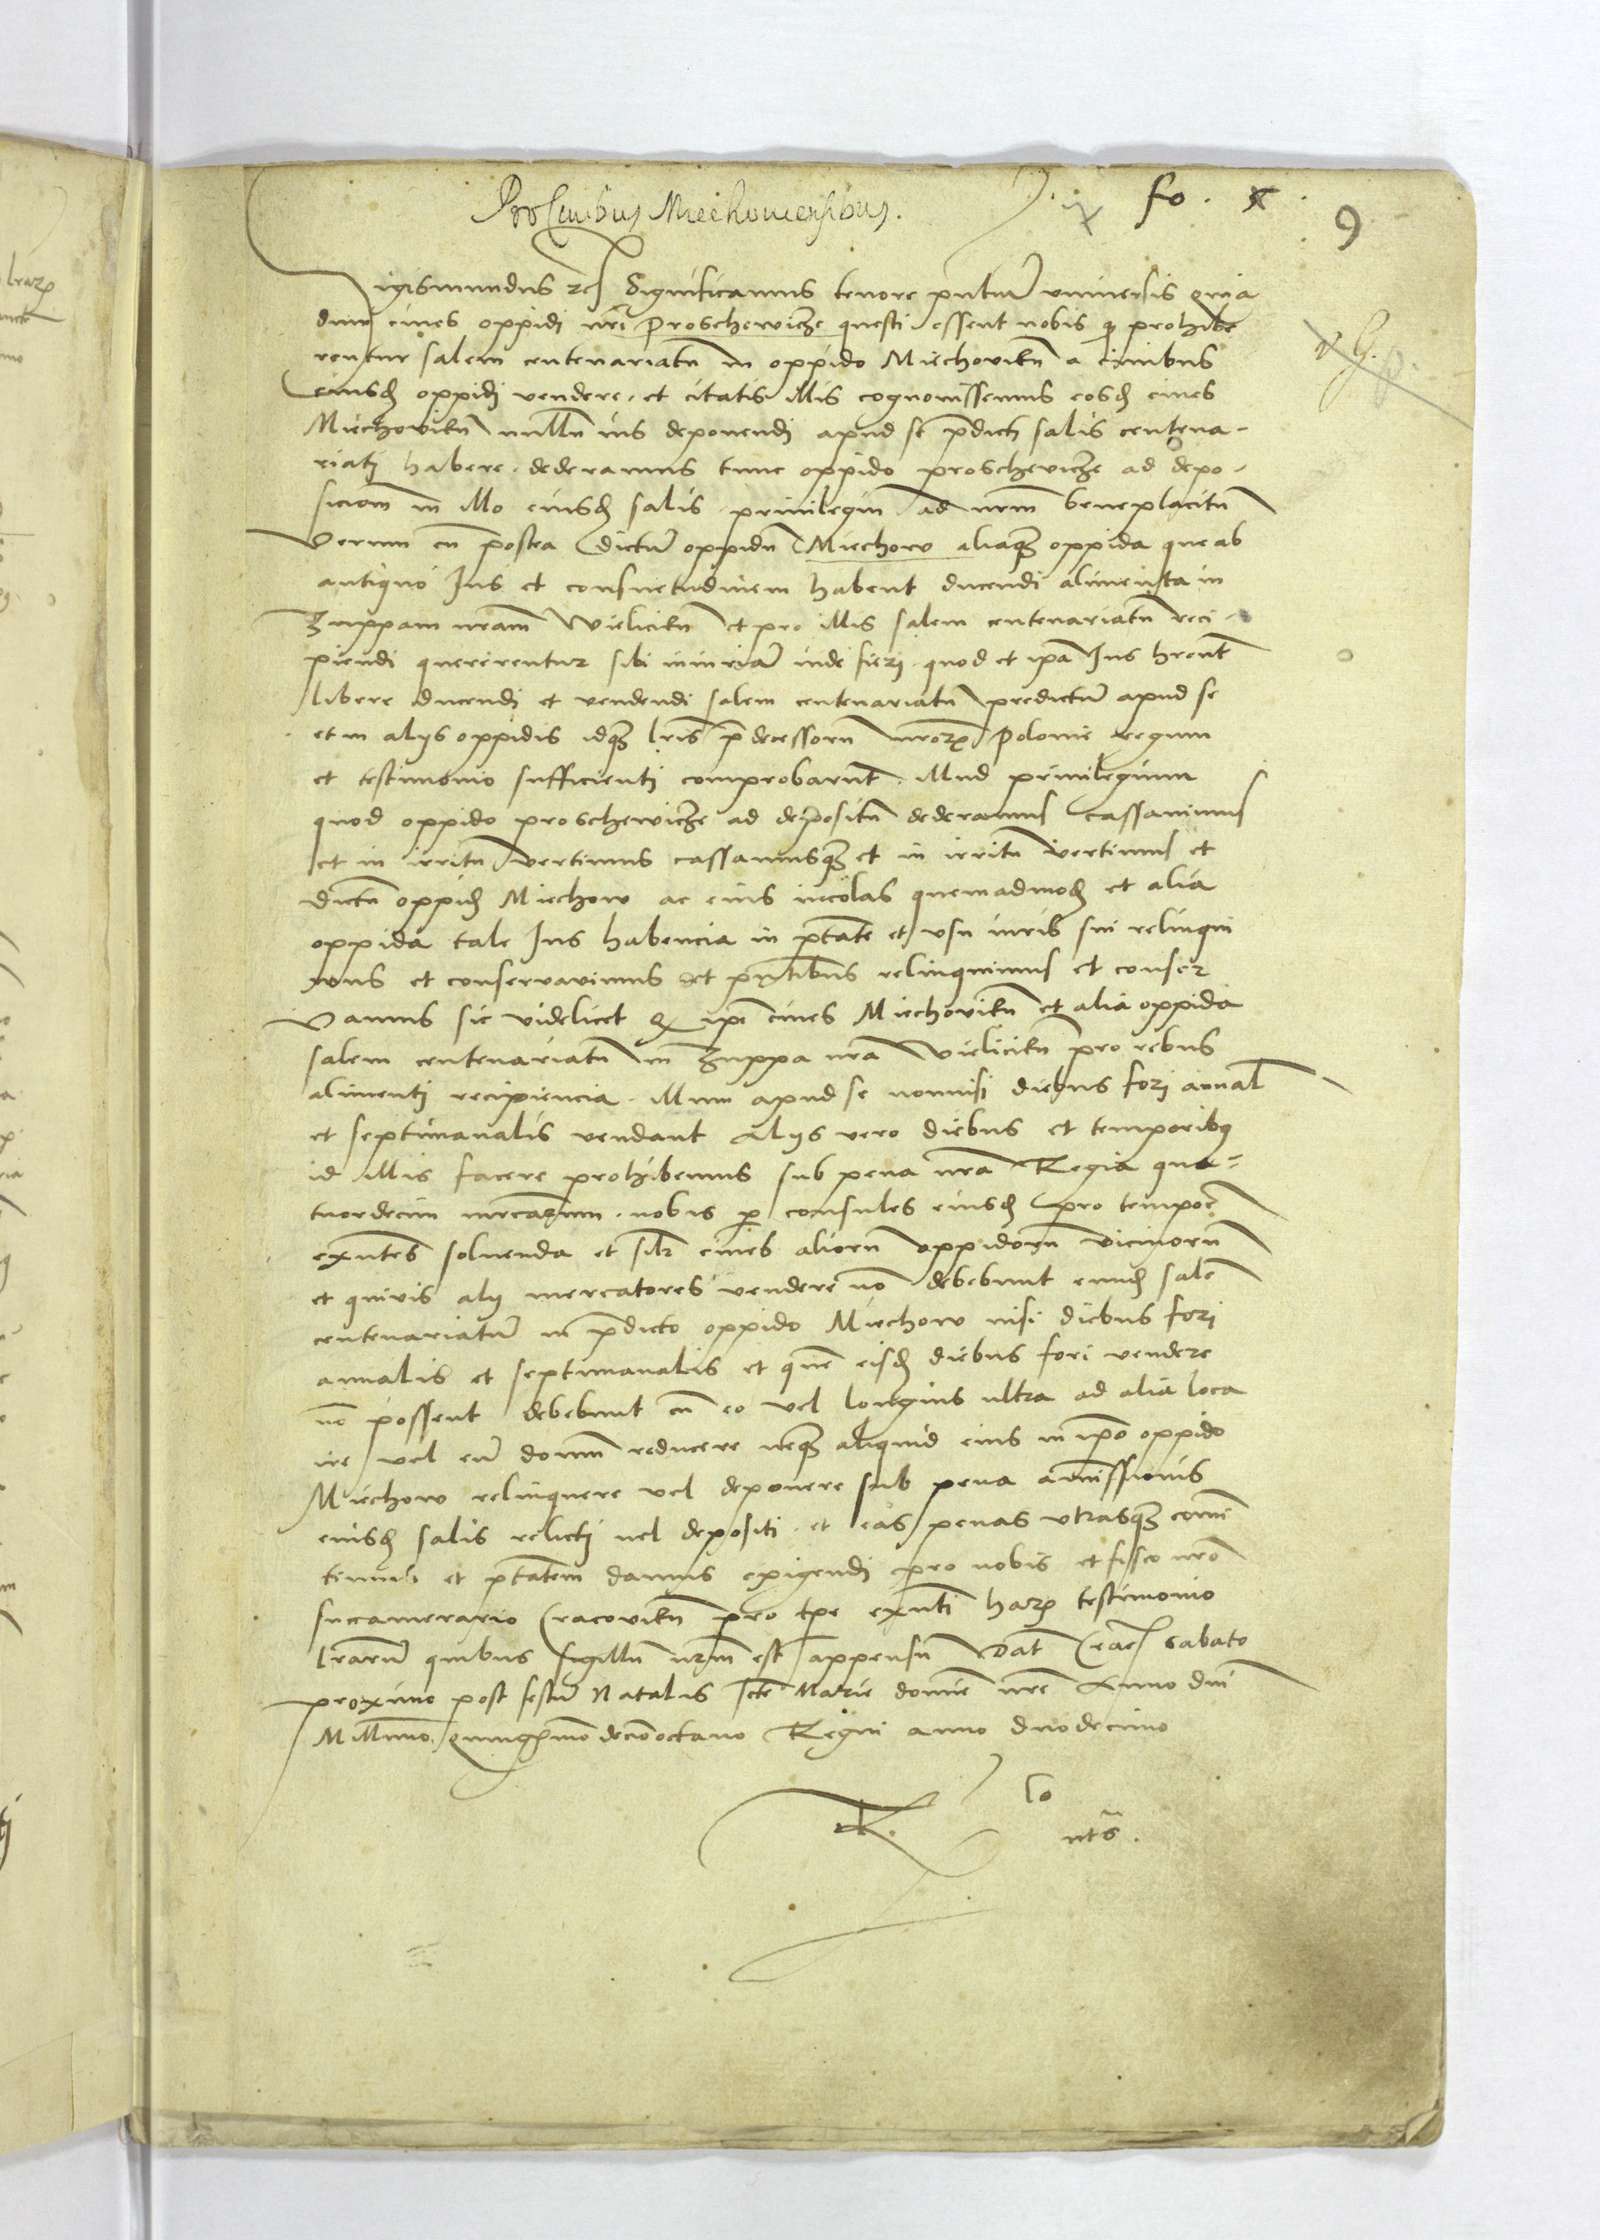 Pro Civibus Miechoviensibus. fo. x
9
Sigismundus etc Significamus tenore pntiu universis quia
dum cives oppidi nri Proschewicze questi essent nobis q prohibe
rentur salem centenariatu in oppido Miechovien a civibus
eiusd oppidi vendere. et citatis illis cognovissemus eosd cives
Miechovien nullu ius deponendi apud se pdicti salis centena-
riati habere. dederamus tunc oppido proschevicze ad depo-
sicione in illo eiusd salis privilegiu ad nrm beneplacitu
Verum cu postea dictu oppidu Miechow aliaq oppida que ab
antiquo Ius et consuetudinem habent ducendi alimenta in
Zuppam nram Wieliciens et pro illis salem centenariatu reci-
piendi quererentur sibi iniuria inde fieri. quod et ipa Ius hrent
libere ducendi et vendendi salem centenariatu predictu apud se
et in alys oppidis idq lris pdecessoru nroru Polonie regum
et testimonio sufficienti comprobarunt. illud privilegium
quod oppido proschewicze ad depositu dederamus cassavimus
et in irritu vertimus cassamusq et in irritu vertimus et
dictu oppidu Miechow ac eius incolas quemadmod et alia
oppida tale Ius habencia in ptate et usu iuris sui relinqui
mus et conservavimus et pntibus relinquimus et conser
Vamus sic videlicet q ipi cives Miechovien et alia oppida
salem centenariatu in Zuppa nra Vieliciens pro rebus
alimenti recipiencia. illum apud se nonnisi diebus fori annal
et septimanalis vendant Alys vero diebus et temporibus
id illis facere prohibemus sub pena nra Regia qua-
tuordecim marcarum. nobis p consules eiusd pro tempore
exntes solvenda et silr cives alioru oppidoru vicinoru
et quivis aly mercatores vendere no debebunt eund sale
centenariatu in pdicto oppido Miechow nisi diebus fori
annalis et septimanalis et que eisd diebus fori vendere
no possent debebunt cu eo vel longius ultra ad alia loca
ire vel eu domu reducere neq aliquid eius in ipo oppido
Miechow relinquere vel deponere sub pena amissionis
eiusd salis relicti vel depositi. et eas penas utrasq comit
timus et ptatem damus exigendi pro nobis et fisco nro
succamerario Cracovien pro tpe exnti haru testimonio
lraru quibus sigillu nrm est appensu Dat Crac Sabato
proximo post festu Natalis scte Marie domine nre Anno dni
Millmo quingmo decimo octavo Regni anno duodecimo